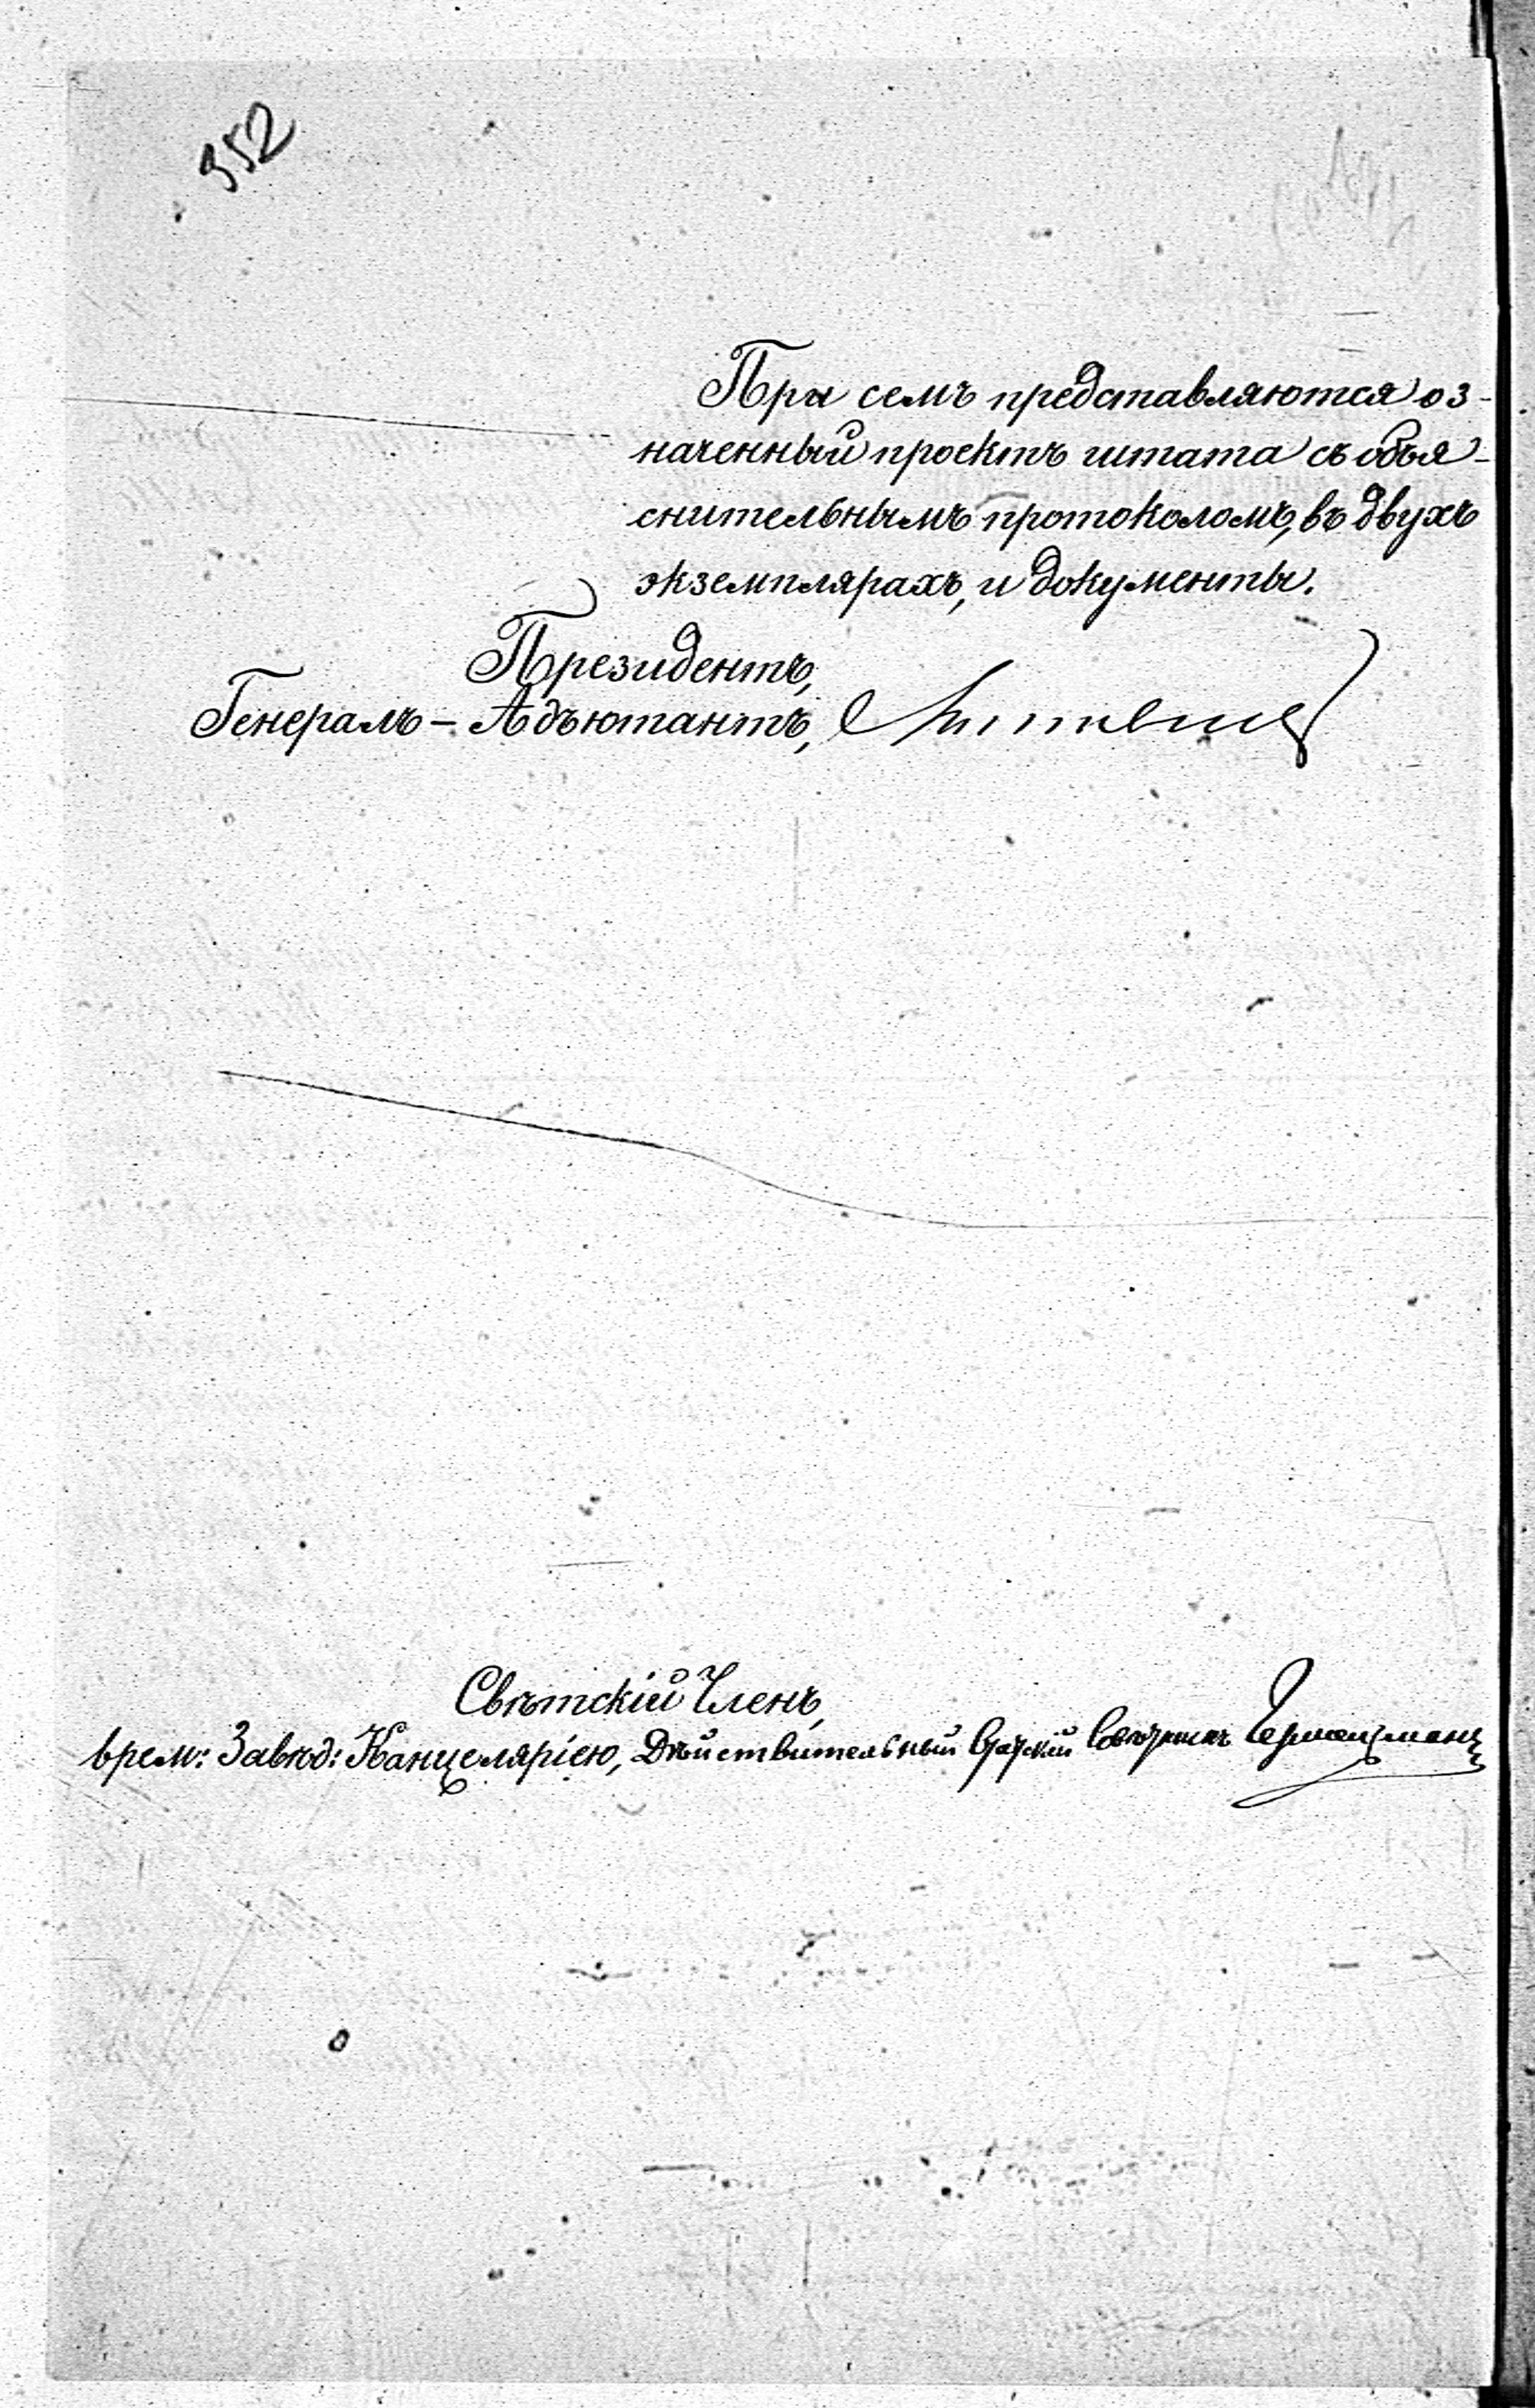 352
При семъ представляются оз-
наченный проектъ штата съ объя-
снительнымъ протоколомъ, въ двухъ
экземплярахъ, и документы.
Президентъ,
Генералъ-Адъютантъ,
Свѣтскій Членъ,
врем: Завѣд: Канцеляріею, Дѣйствительный Статскій Совѣтникъ